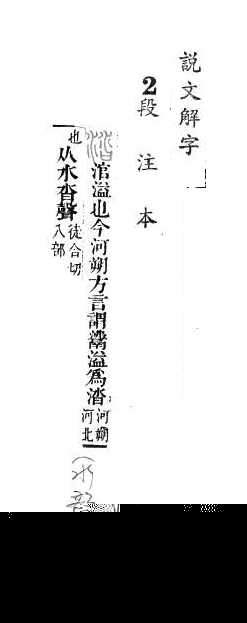 説文解字
2段注本
涫溢也今河朔方言謂溢爲涾河朔
河北
也从水沓聲徒合切
八部
(水部